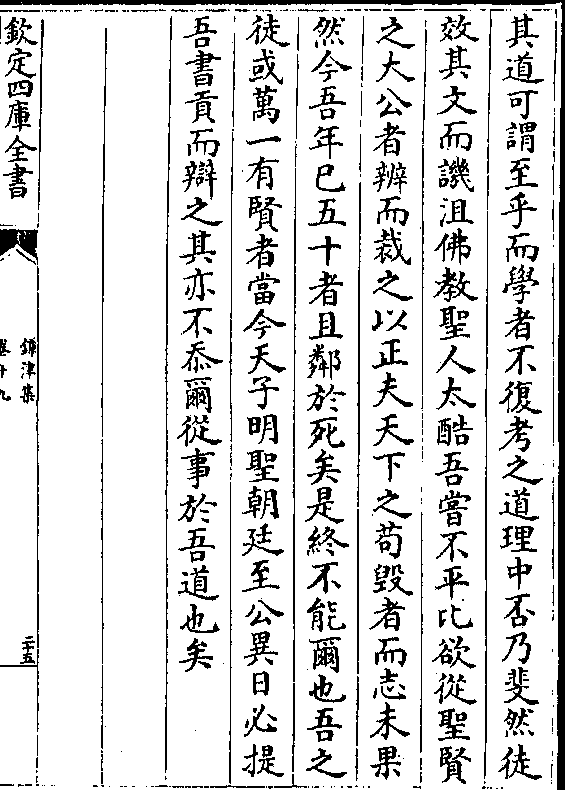 其道可謂至乎而學者不復考之道理中否乃斐然徒
效其文而譏沮佛教聖人太酷吾嘗不平比欲從聖賢
之大公者辨而裁之以正夫天下之苟毀者而志未果
然今吾年已五十者且鄰於死矣是終不能爾也吾之
徒或萬一有賢者當今天子明聖朝廷至公異日必提
吾書貢而辯之其亦不忝爾從事於吾道也矣
欽定四庫全書
鐔津集
卷十九
二十五